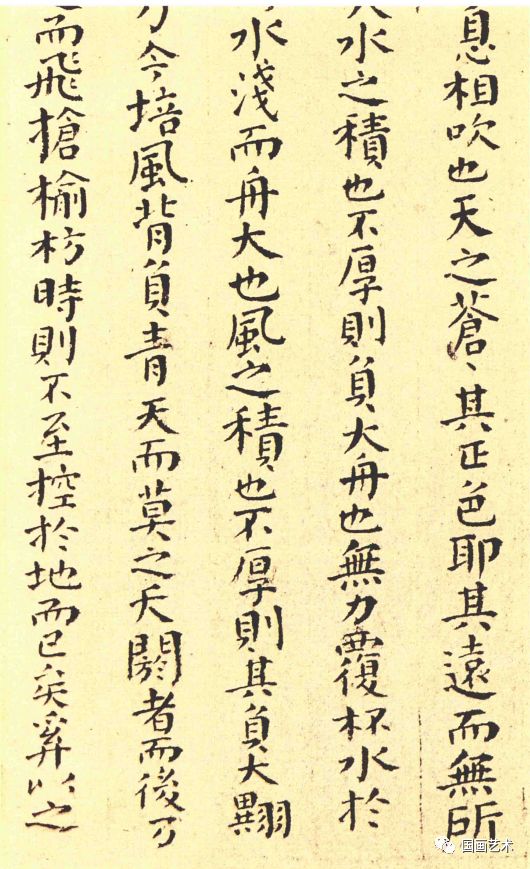 息相吹也天之蒼〻其正色耶其遠而無所
水之積也不厚則負大舟也無力覆杯水於
水淺而舟大也風之積也不厚則其負大翼
乃今培風背負青天而莫之夭閼者而後乃
而飛槍榆枋時則不至控於地而已矣奚以之
国画艺术